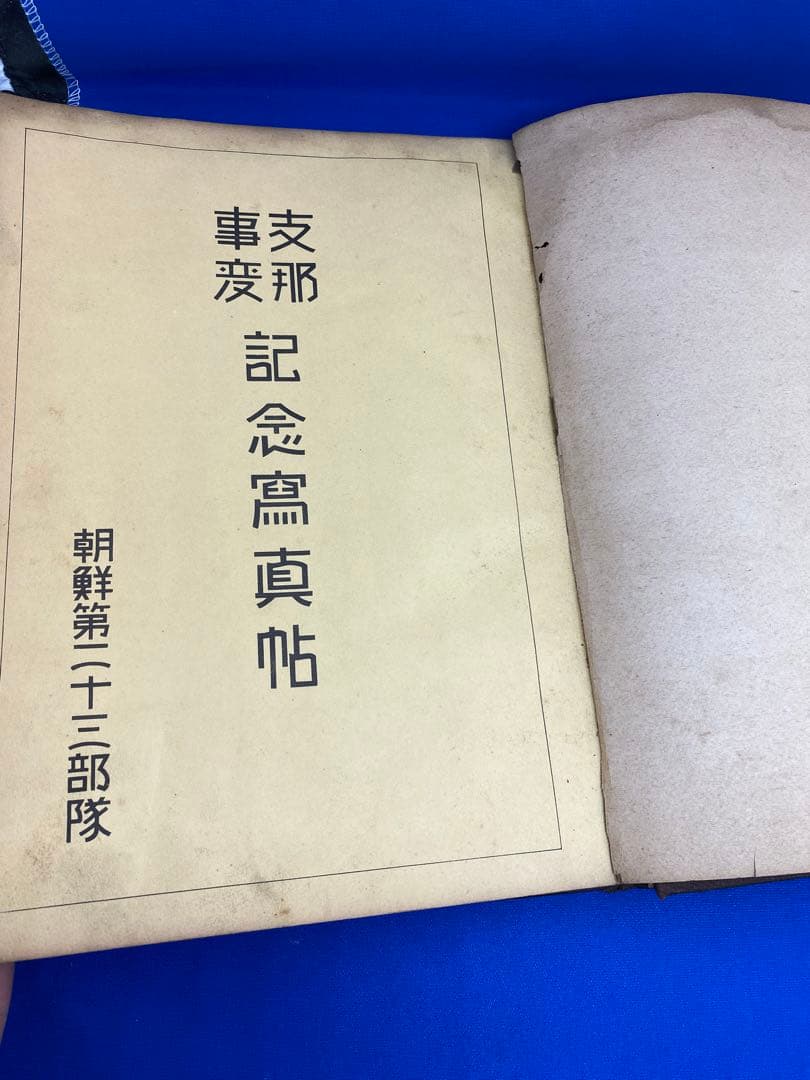 支那
事変
記念寫真帖
朝鮮第二十三部隊